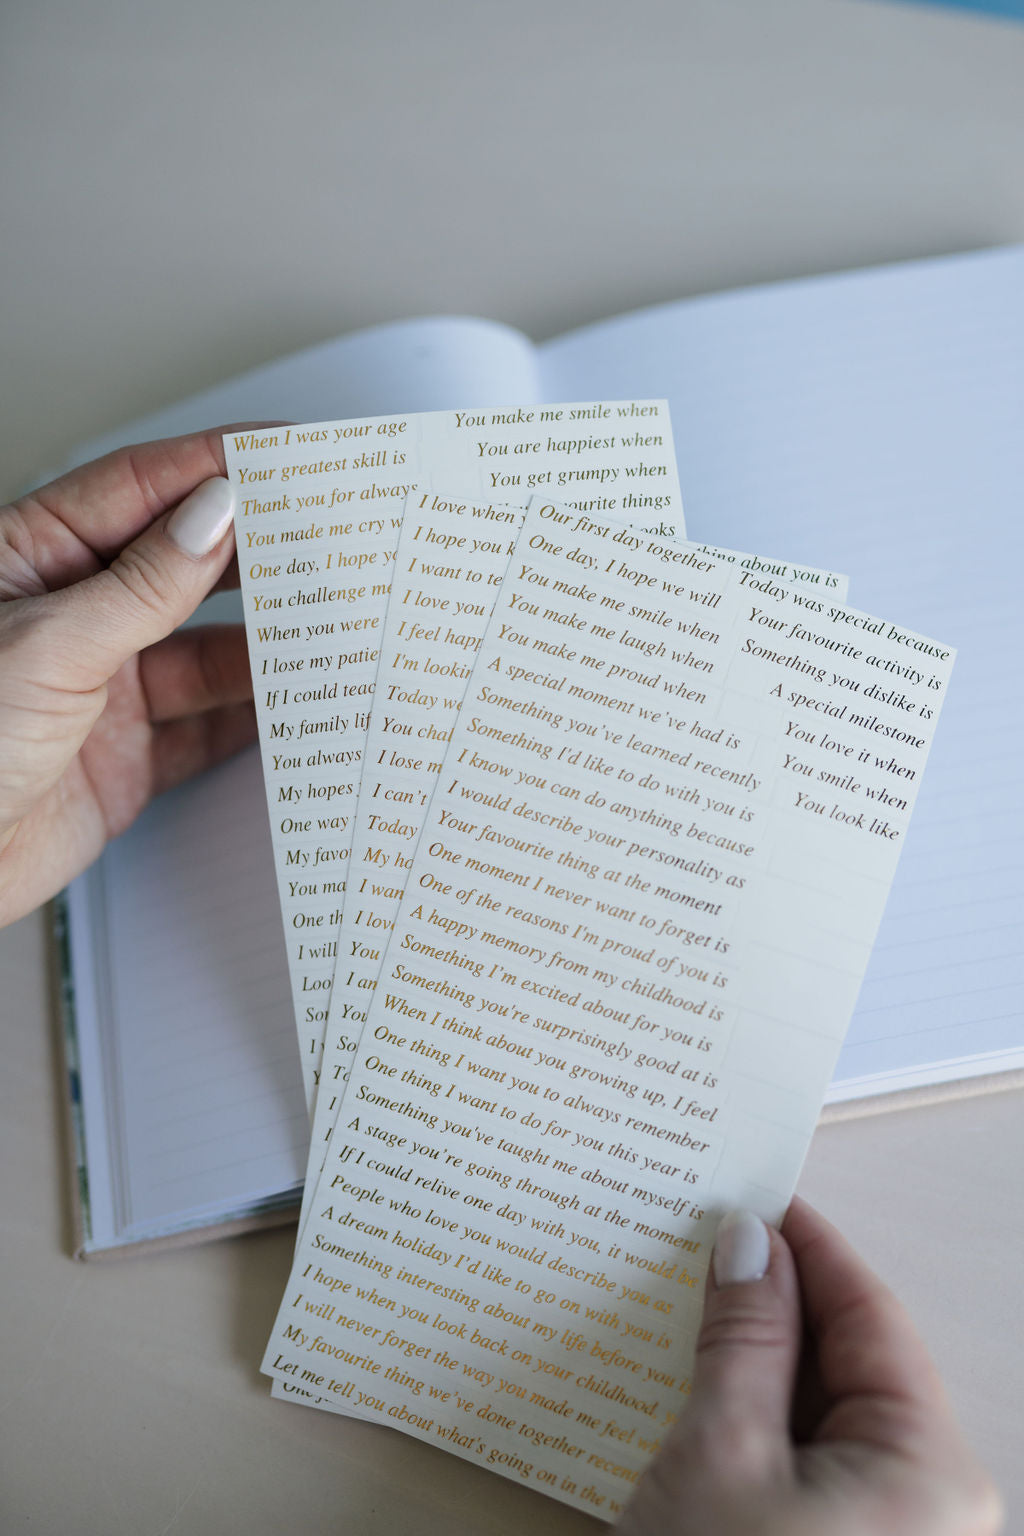 When I was your age
Your greatest skill is
Thank you for always
You made me cry
One day, I hope
You challenge me
When you were
I lose my
If I could
My family
You always
My hopes
One way
My
You
One
I will
You make me smile when
You are happiest when
You get grumpy when
things
about you is
I love when
I hope you
I want to
I love you
I feel
I'm
Today
You
I lose
I can't
Today
My
I
I
You
I
You
Our first day together
One day, I hope we will
You make me smile when
You make me laugh when
You make me proud when
A special moment we've had is
Something you've learned recently
Something I'd like to do with you is
I know you can do anything because
I would describe your personality as
Your favourite thing at the moment
One moment I never want to forget is
One of the reasons I'm proud of you is
A happy memory from my childhood is
Something I'm excited about for you is
Something you're surprisingly good at is
When I think about you growing up, I feel
One thing I want you to always remember
One thing I want to do for you this year is
Something you've taught me about myself is
A stage you're going through at the moment
If I could relive one day with you, it would be
People who love you would describe you as
A dream holiday I'd like to go on with you is
Something interesting about my life before you
I hope when you look back on your childhood,
I will never forget the way you made me feel
My favourite thing we've done together
Let me tell you about what's going on in the
Today was special because
Your favourite activity is
Something you dislike is
A special milestone
You love it when
You smile when
You look like
One